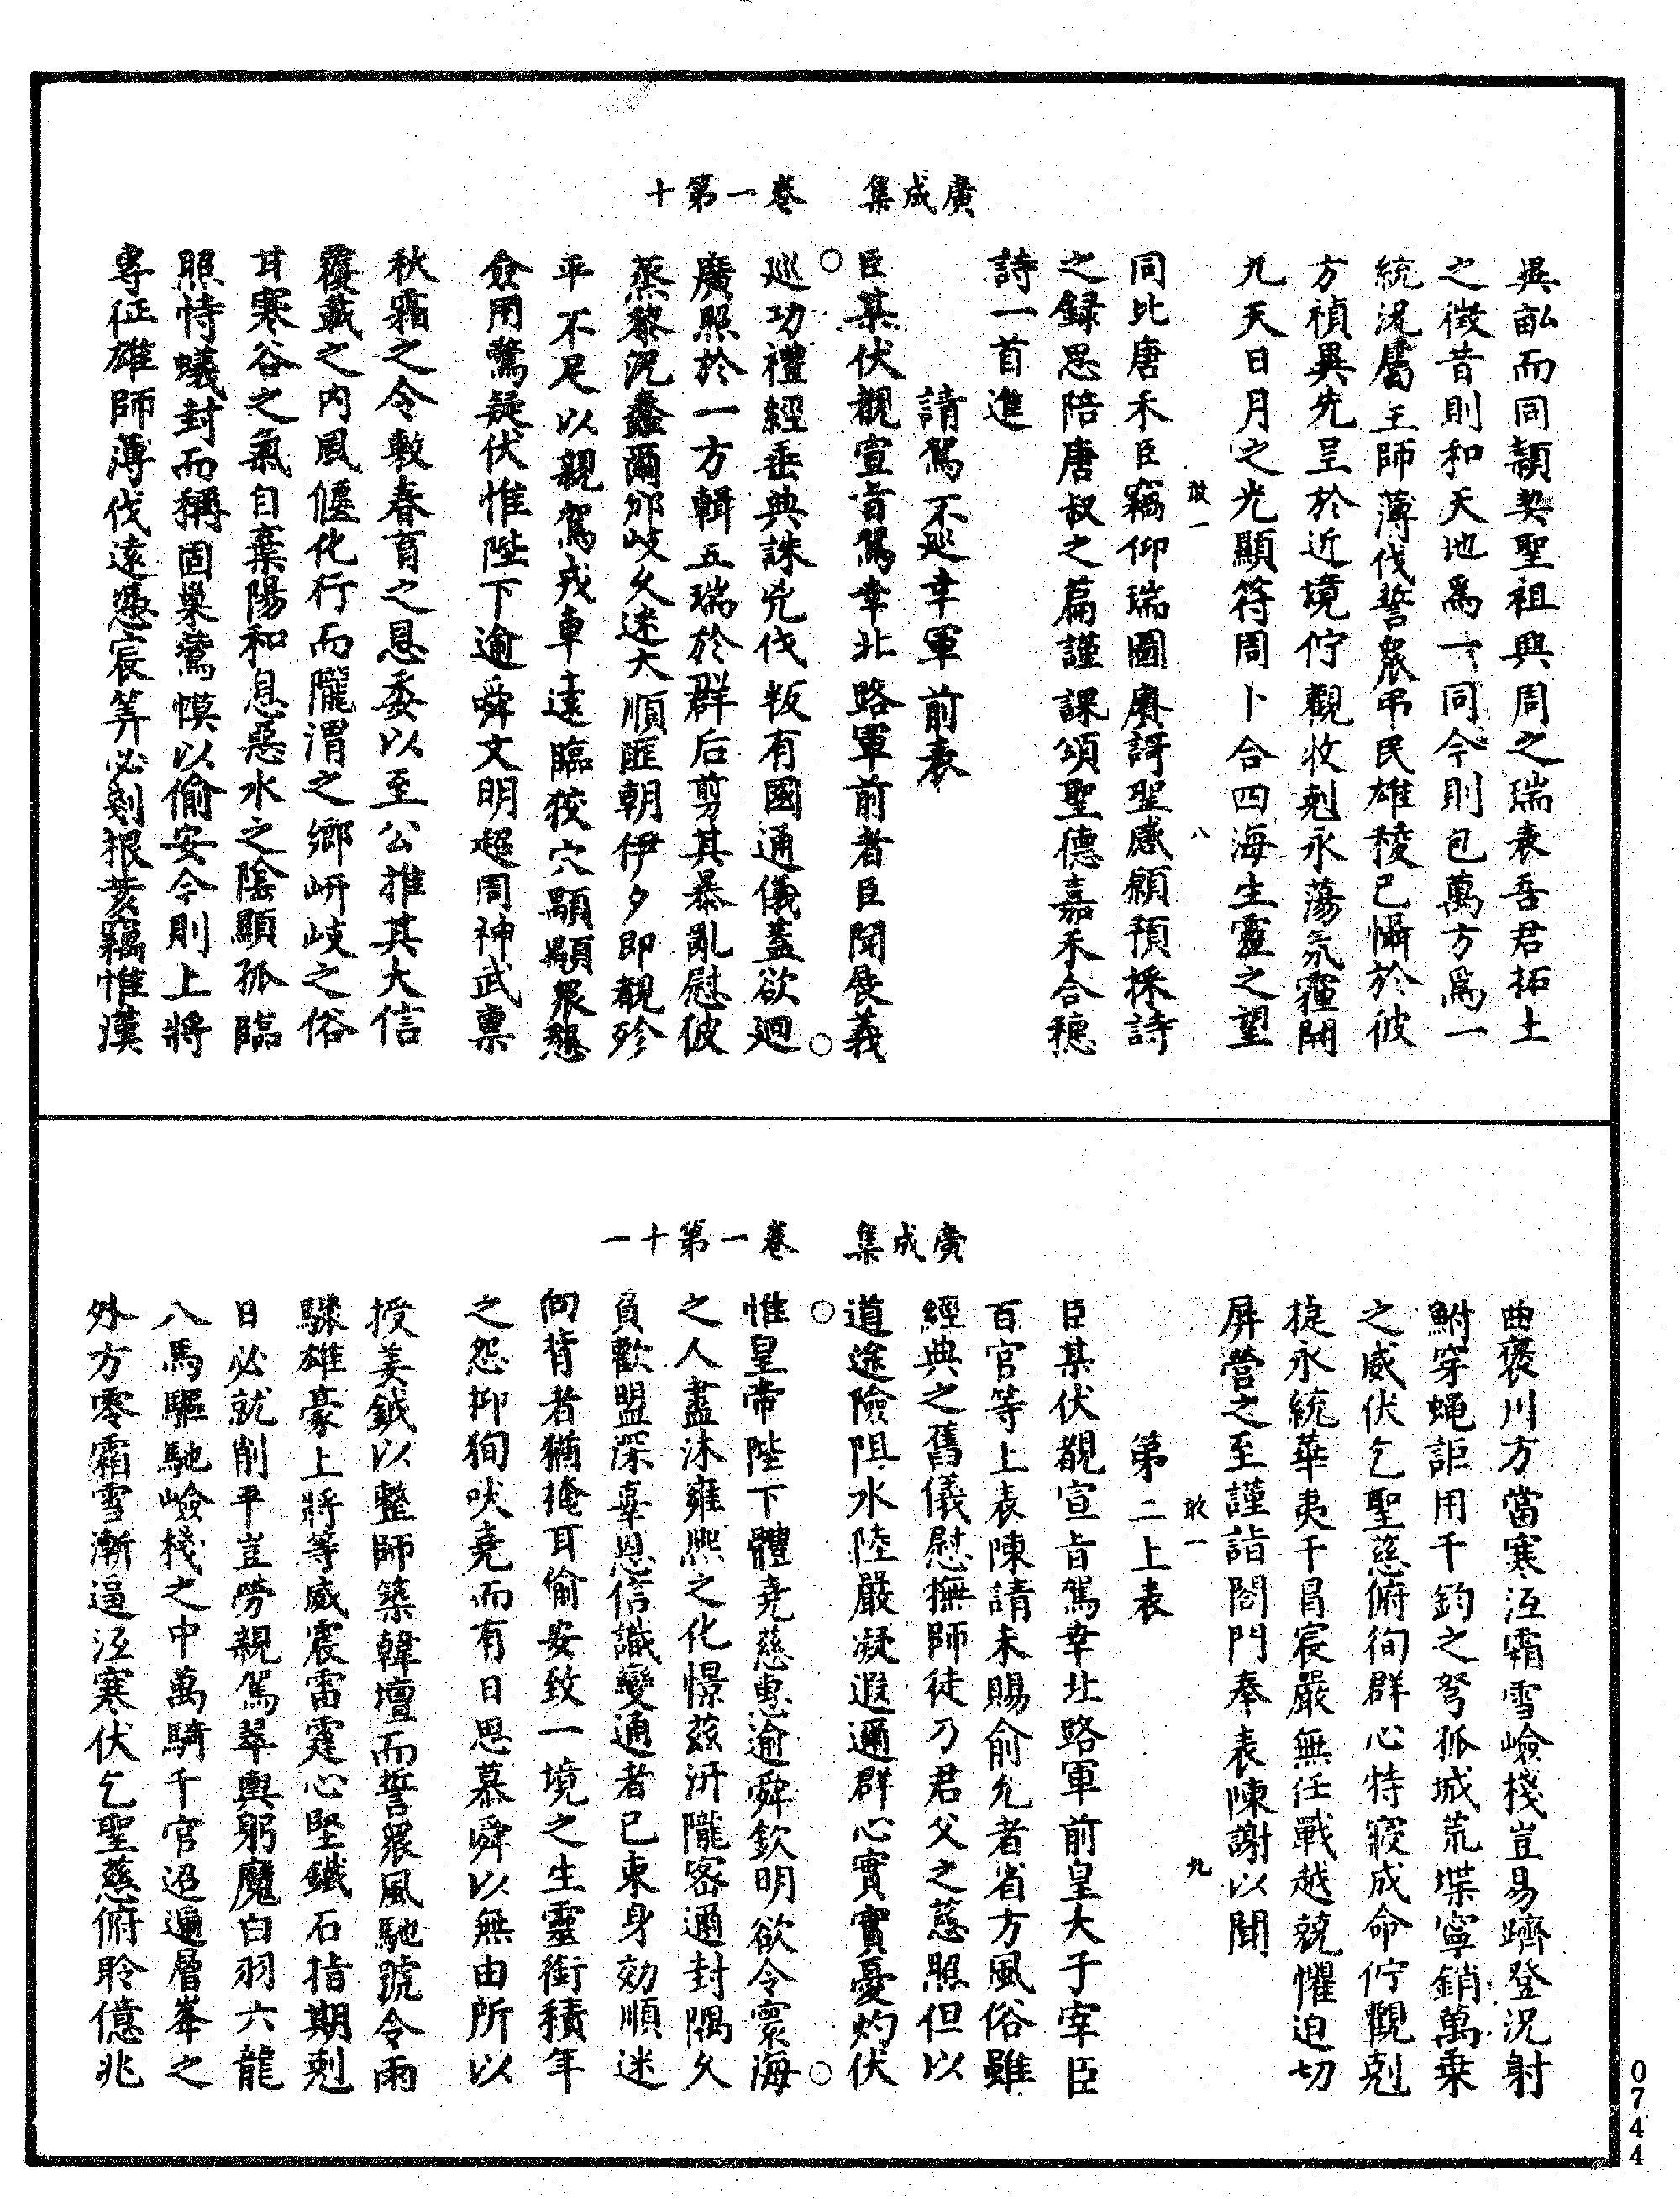 廣成集　卷一第十
異畝而同穎契聖祖興周之瑞表吾君拓土
之徵昔則和天地爲一同今則包萬方爲一
統況屬王師薄伐誓衆弔民雄稜已懾於彼
方禎異先呈於近境佇觀收剋永蕩氛霾開
九天日月之光顯符周卜合四海生靈之望
敢一　八
同比唐禾臣竊仰瑞圖賡謌聖感願預採詩
之録思陪唐叔之篇謹課頌聖德嘉禾合穗
詩一首進
請駕不巡幸軍前表
臣某伏覩宣旨駕幸北路軍前者臣聞展義
巡功禮經垂典誅兇伐叛有國通儀蓋欲廻
廣照於一方輯五瑞於群后剪其暴亂慰彼
蒸黎況蠢爾邠岐久迷大順匪朝伊夕即覩殄
平不足以親駕戎車遠臨狡穴顒顒衆懇
僉用驚疑伏惟陛下逾舜文明超周神武稟
秋霜之令敷春育之恩委以至公推其大信
覆載之内風偃化行而隴渭之鄉岍岐之俗
甘寒谷之氣自棄陽和息惡水之陰顯孤臨
照恃蟻封而稱固巢鷰幙以偷安今則上將
專征雄師薄伐遠憑宸筭必剗根荄竊惟漢
廣成集　卷一第十一
曲褒川方當寒沍霜雪嶮棧豈易躋登況射
鮒穿蝿詎用千鈞之弩孤城荒堞寧銷萬乗
之威伏乞聖慈俯徇群心特寢成命佇觀剋
捷永統華夷干冒宸嚴無任戰越兢懼迫切
屏營之至謹詣閤門奉表陳謝以聞
敢一　九
第二上表
臣某伏覩宣旨駕幸北路軍前皇大子宰臣
百官等上表陳請未賜俞允者省方風俗雖
經典之舊儀慰撫師徒乃君父之慈照但以
道途險阻水陸嚴凝遐邇群心實實憂灼伏
惟皇帝陛下體堯慈惠逾舜欽明欲令寰海
之人盡沐雍熙之化憬茲汧隴密邇封隅久
負歡盟深辜恩信識變通者已束身効順迷
向背者猶掩耳偷安致一境之生靈銜積年
之怨抑狥吠堯而有日思慕舜以無由所以
授美鉞以整師築韓壇而誓衆風馳號令雨
驟雄豪上將等威震雷霆心堅鐵石指期剋
日必就削平豈勞親駕翠輿躬麾白羽六龍
八馬驅馳嶮棧之中萬騎千官迢遞層峯之
外方零霜雪漸逼沍寒伏乞聖慈俯聆億兆
0744